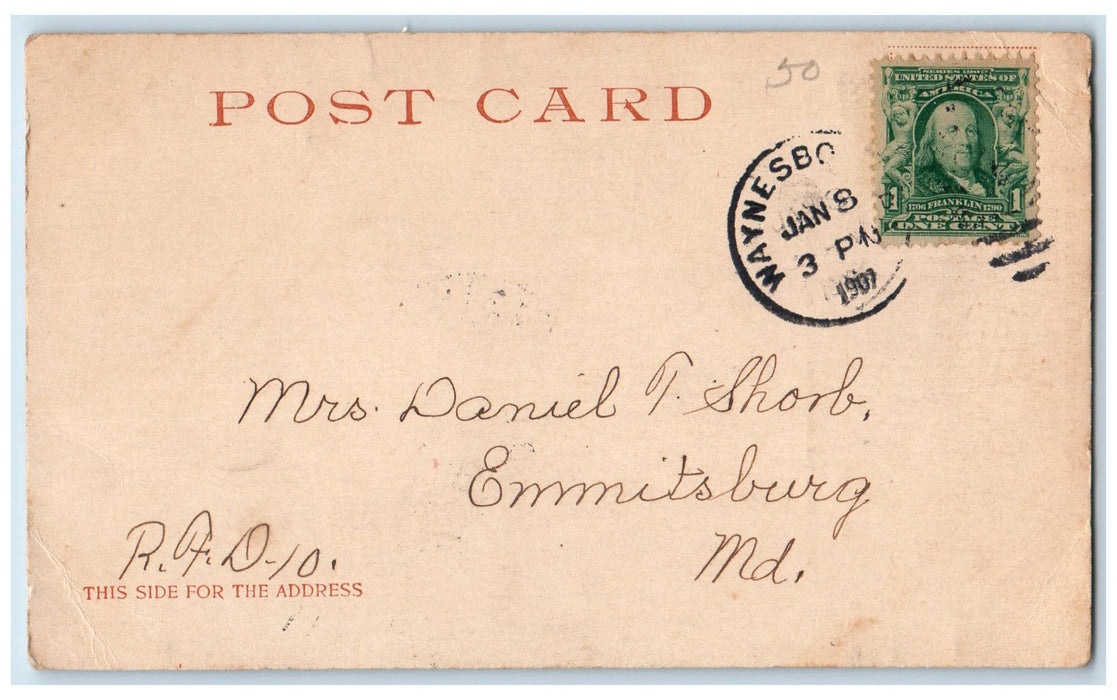 50
POST CARD
SERIES 1902
UNITED STATES OF
AMERICA
1 1
1706 FRANKLIN 1790
POSTAGE
ONE CENT
WAYNESBO
JAN 8
3 PM
1907
Mrs. Daniel T. Shorb,
Emmitsburg
Md.
R.F.D. 10.
THIS SIDE FOR THE ADDRESS